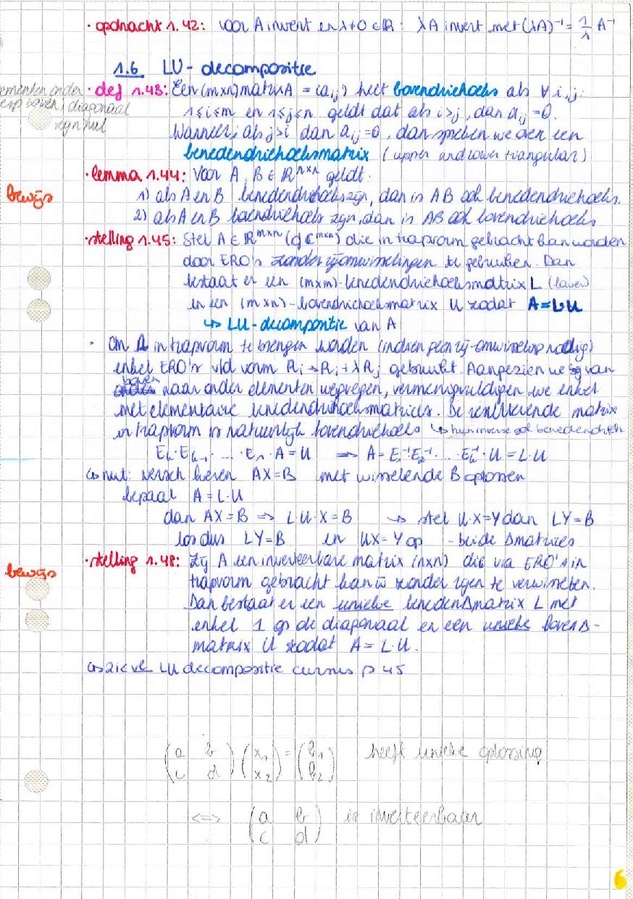 • opdracht 1.42: voor A invert en λ≠0 ∈ ℝ: λA invert met (λA)⁻¹ = 1/λ A⁻¹
1.6 LU-decompositie
elementen onder
resp boven diagonaal
zijn nul
• def 1.43: Een (m×n) matrix A = (aᵢⱼ) heet bovendriehoeks als ∀ i,j:
1≤i≤m en 1≤j≤n geldt dat als i>j, dan aᵢⱼ=0.
Wanneer, als j>i dan aᵢⱼ=0, dan spreken we over een
benedendriehoeksmatrix (upper and lower triangular)
• lemma 1.44: Voor A, B ∈ ℝⁿˣⁿ geldt:
bewijs
1) als A en B benedendriehoeks zijn, dan is AB ook benedendriehoeks.
2) als A en B bovendriehoeks zijn, dan is AB ook bovendriehoeks
• stelling 1.45: Stel A ∈ ℝᵐˣⁿ (of ℂᵐˣⁿ) die in trapvorm gebracht kan worden
door ERO's zonder rijomwisselingen te gebruiken. Dan
bestaat er een (m×m)-benedendriehoeksmatrix L (lower)
en een (m×n)-bovendriehoeksmatrix U zodat A=L·U
↳ LU-decompositie van A
• Om A in trapvorm te brengen worden (indien geen rij-omwisseling nodig)
enkel ERO's v/d vorm Rᵢ→Rᵢ+λRⱼ gebruikt. Aangezien we van
boven naar onder elementen wegvegen, vermenigvuldigen we enkel
met elementaire benedendriehoeksmatrices. De resulterende matrix
in trapvorm is natuurlijk bovendriehoeks ↳ hun inverse ook benedendriehk
Eₖ·Eₖ₋₁·…·E₁·A=U ⟹ A=E₁⁻¹E₂⁻¹·…·Eₖ⁻¹·U=L·U
↳ nut: AX=B met wisselende B oplossen
bepaal A=L·U
dan AX=B ⟹ L·U·X=B ↳ stel U·X=Y dan LY=B
los dus LY=B en UX=Y op beide Δmatrices
• stelling 1.48: Zij A een inverteerbare matrix (n×n) die via ERO's in
bewijs
trapvorm gebracht kan w zonder rijen te verwisselen.
Dan bestaat er een unieke benedenΔmatrix L met
enkel 1 op de diagonaal en een unieke bovenΔ-
matrix U zodat A= L·U.
LU decompositie cursus p 45
(a b; c d)(x₁; x₂)=(b₁; b₂) heeft unieke oplossing
<=> (a b; c d) is inverteerbaar
6